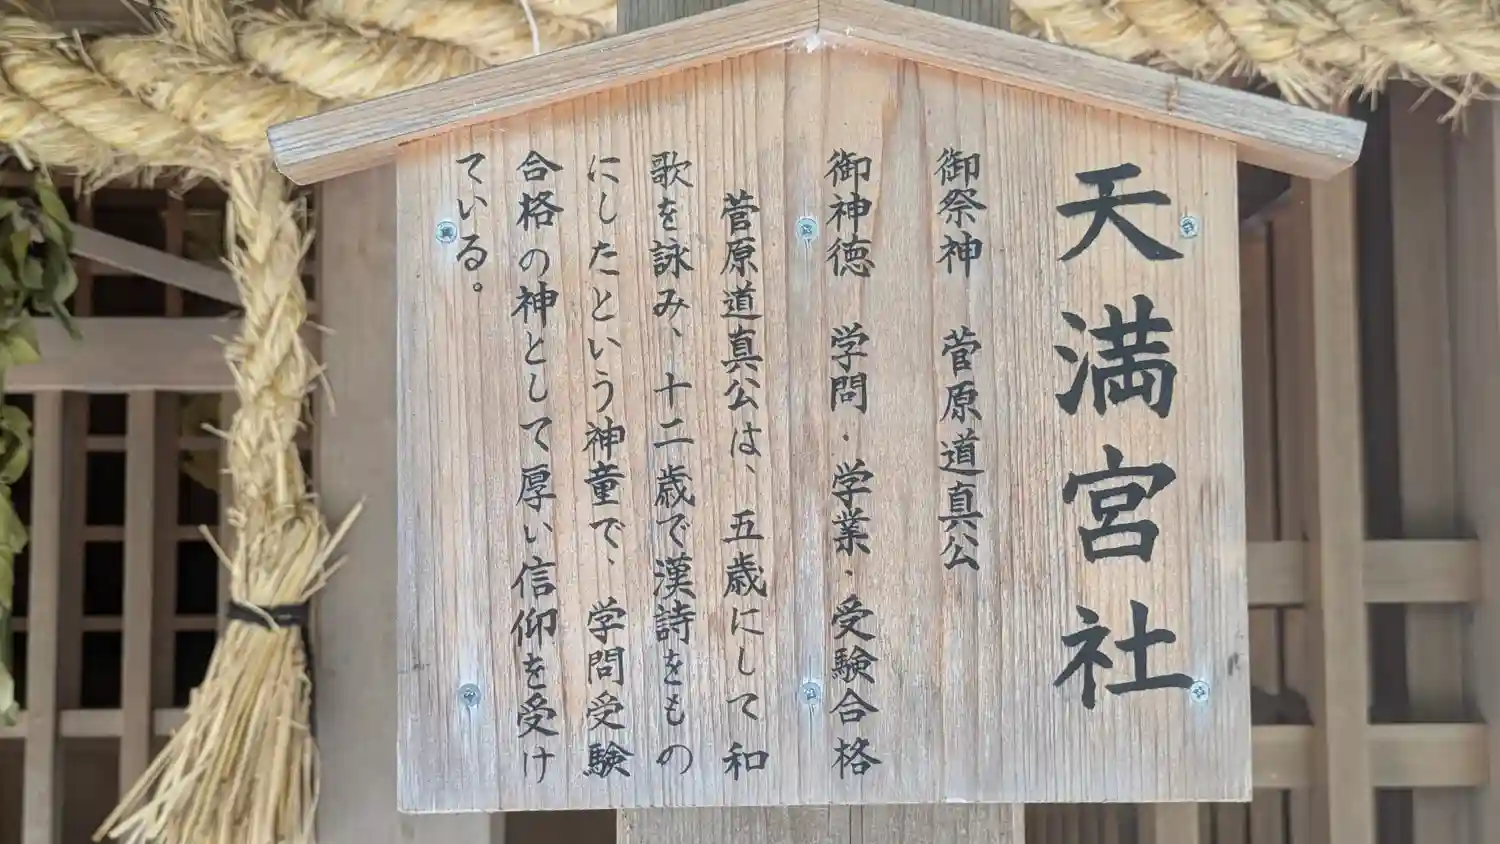 天満宮社
御祭神　菅原道真公
御神徳　学問・学業・受験合格
菅原道真公は、五歳にして和
歌を詠み、十二歳で漢詩をもの
にしたという神童で、学問受験
合格の神として厚い信仰を受け
ている。